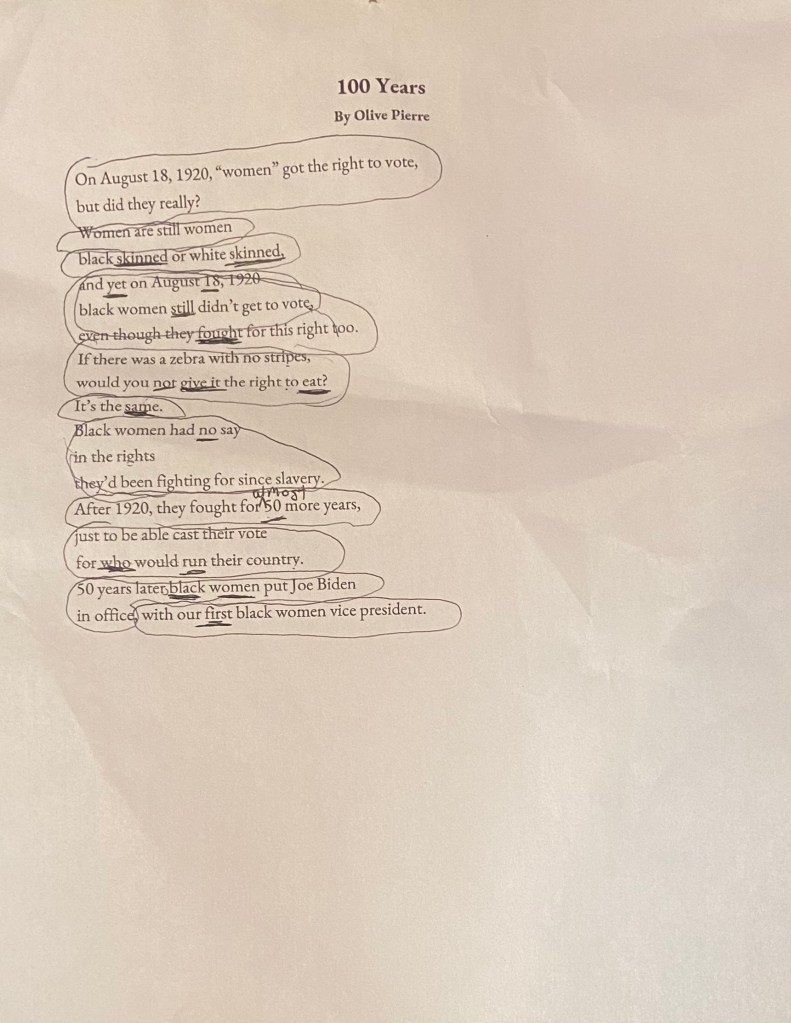 100 Years
By Olive Pierre
On August 18, 1920, “women” got the right to vote,
but did they really?
Women are still women
black skinned or white skinned,
and yet on August 18, 1920
black women still didn’t get to vote,
even though they fought for this right too.
If there was a zebra with no stripes,
would you not give it the right to eat?
It’s the same.
Black women had no say
in the rights
they’d been fighting for since slavery.
almost
After 1920, they fought for 50 more years,
just to be able cast their vote
for who would run their country.
50 years later, black women put Joe Biden
in office, with our first black women vice president.